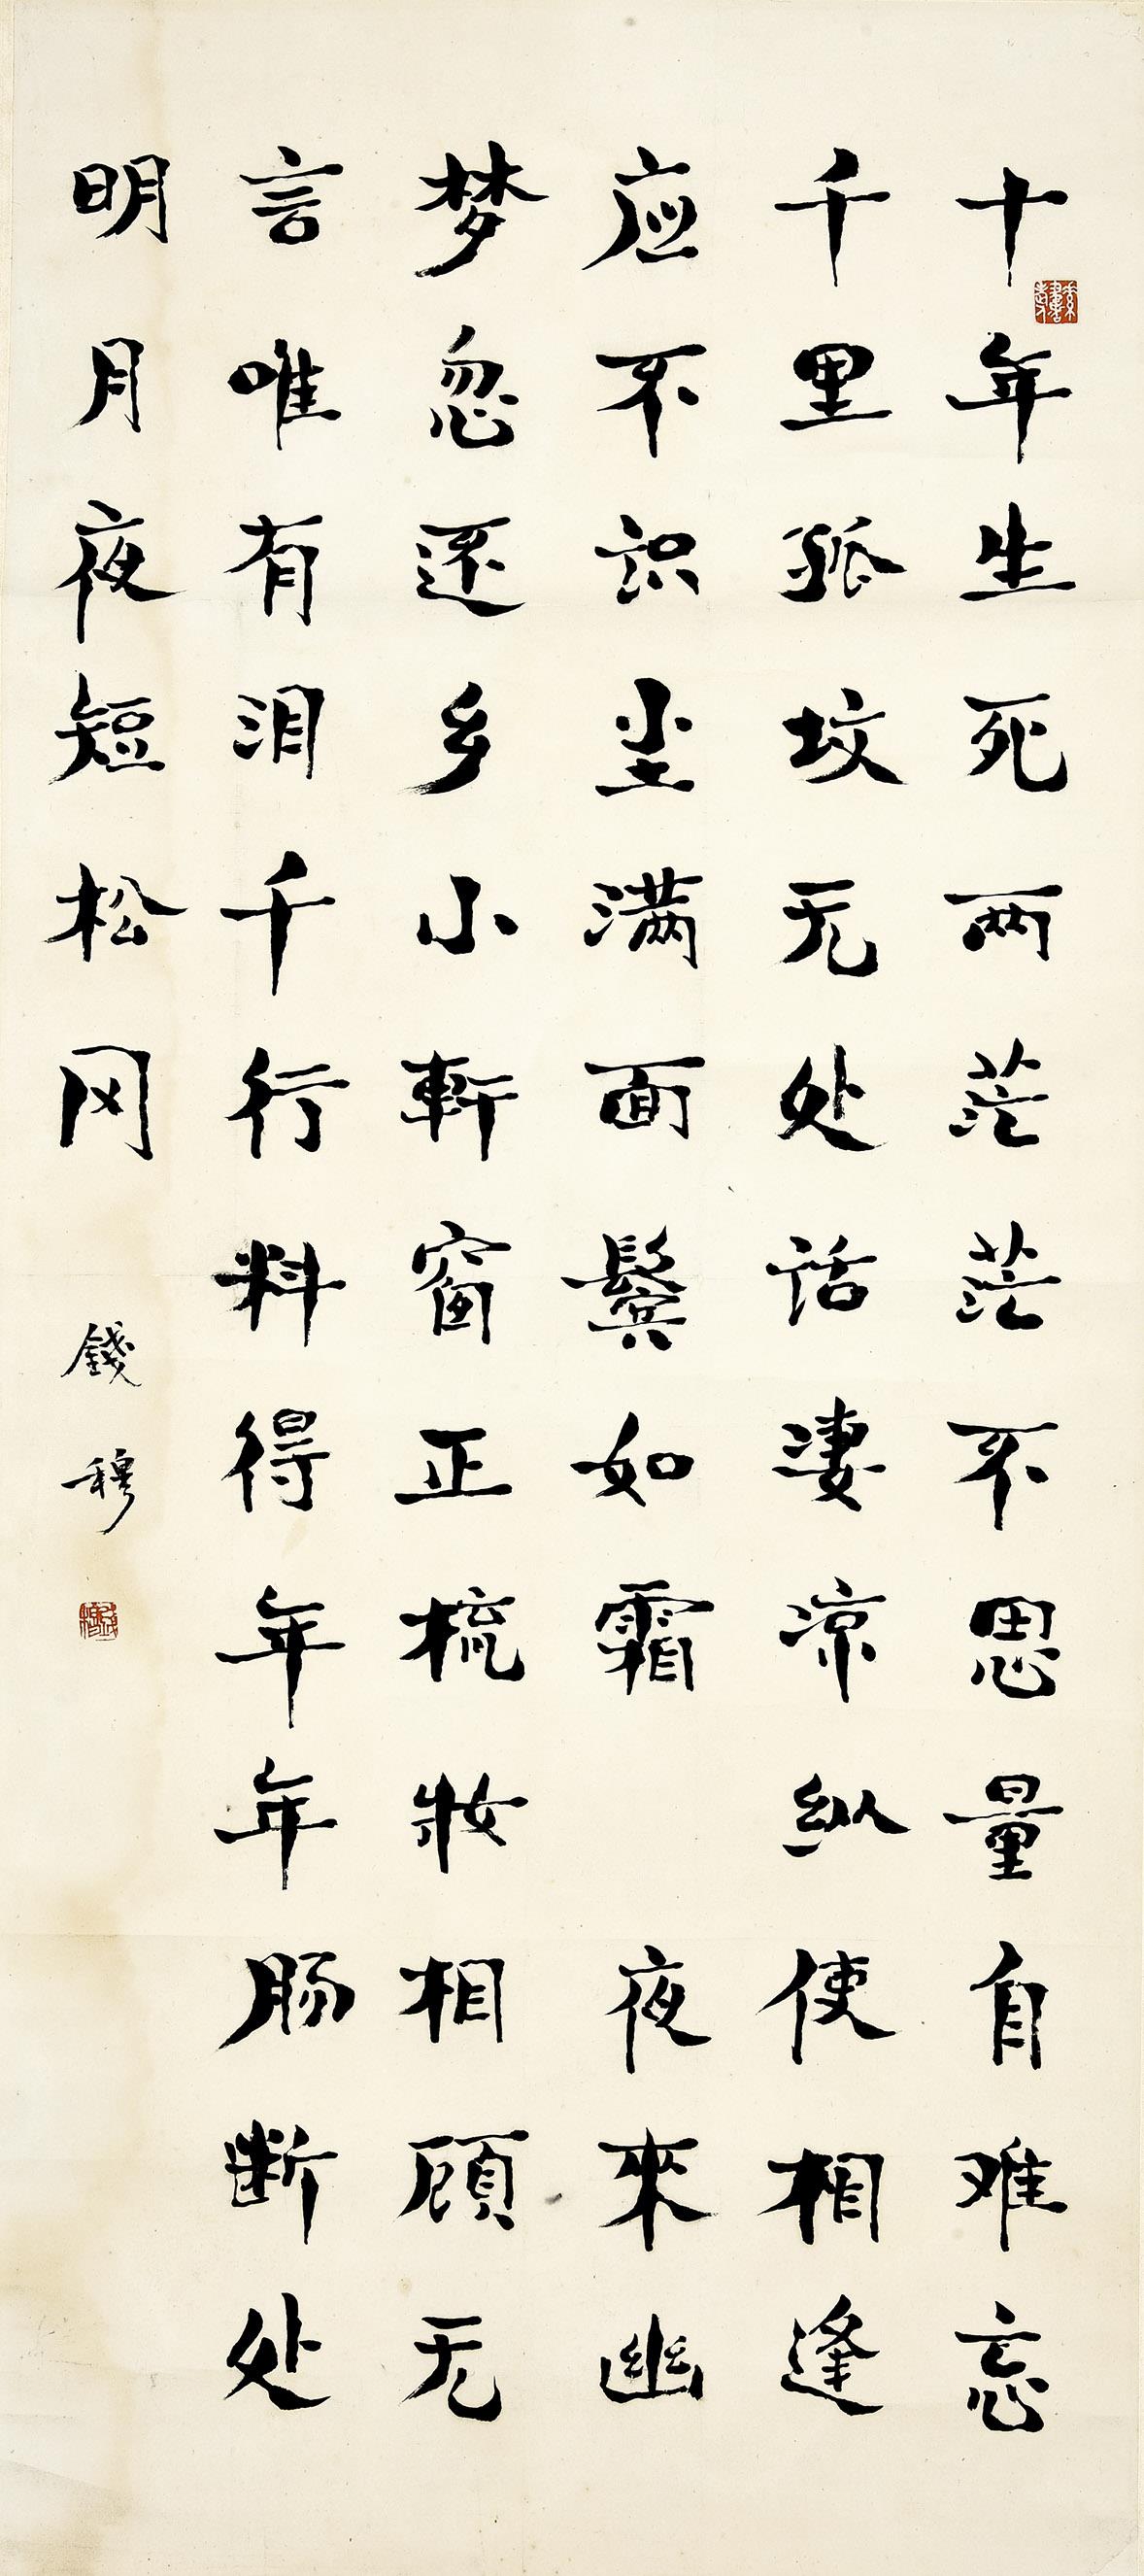 十年生死两茫茫不思量自难忘
千里孤坟无处话凄凉纵使相逢
应不识尘满面鬓如霜 夜來幽
梦忽还乡小軒窗正梳妝相顾无
言唯有泪千行料得年年肠断处
明月夜短松冈
錢穆